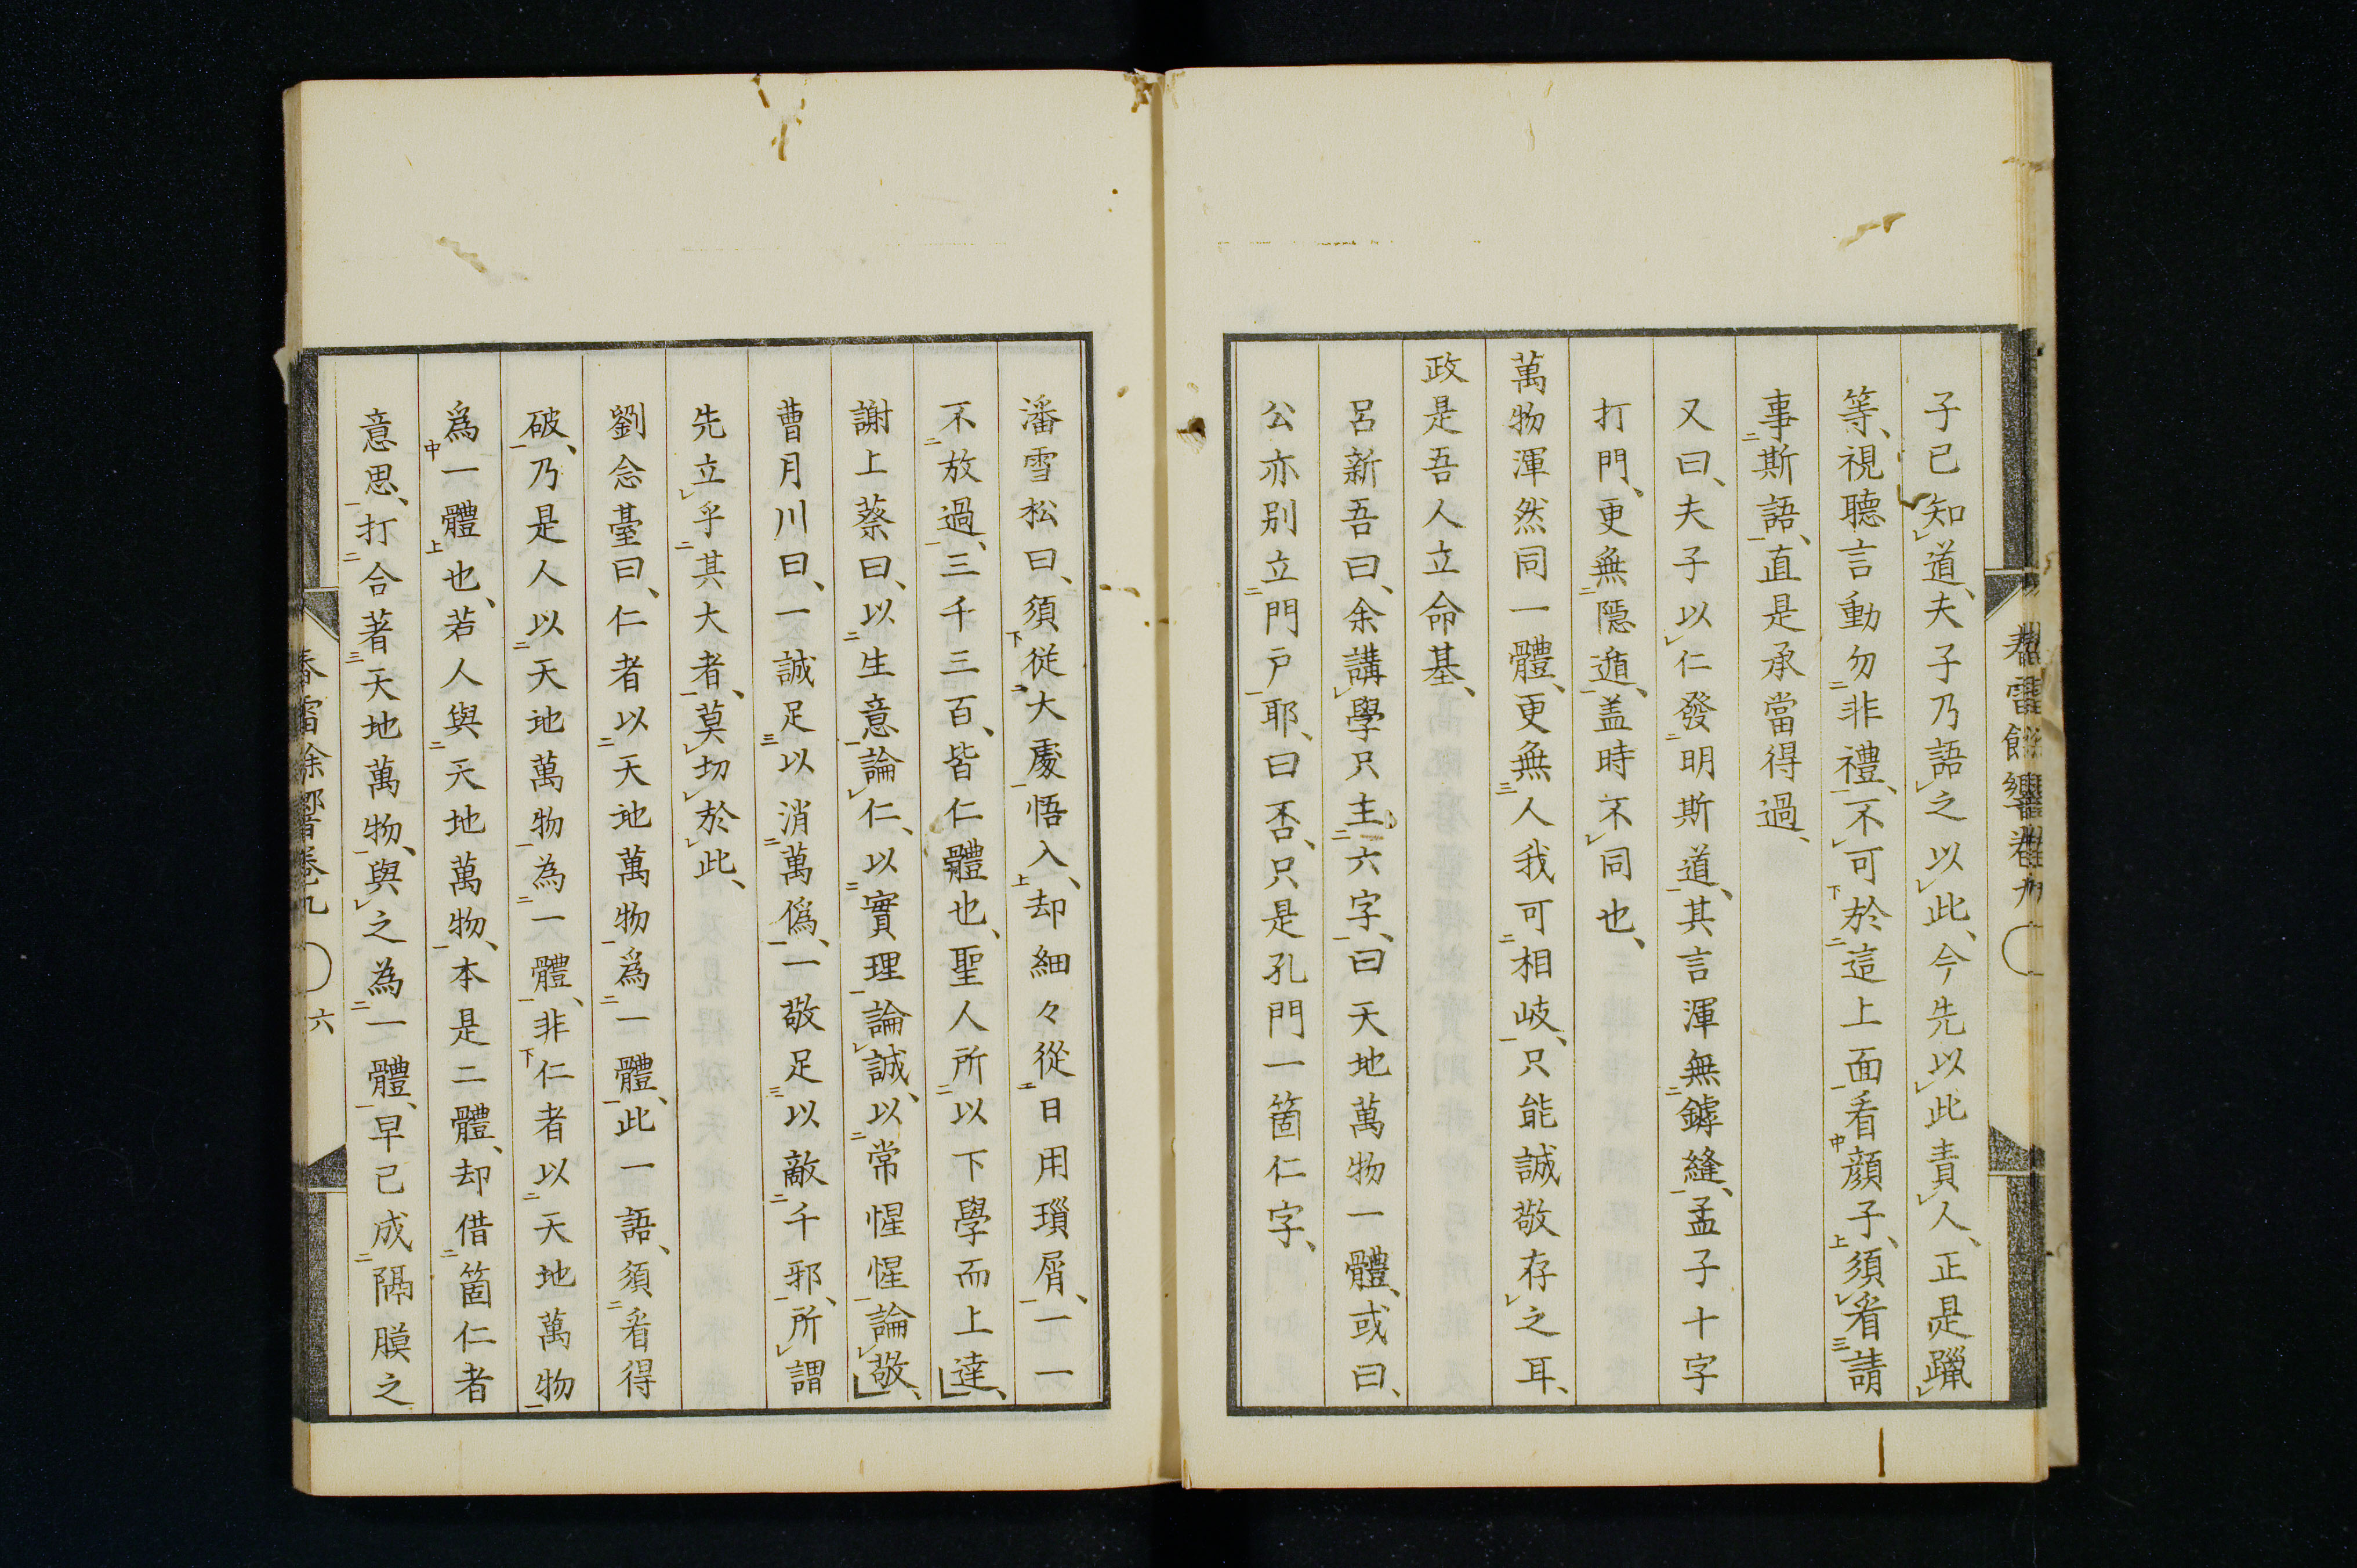 子已知道、夫子乃語之以此、今先以此責人、正是躐
等、視聽言動勿非禮、不可於這上面看顏子、須看請
事斯語、直是承當得過、
又曰、夫子以仁發明斯道、其言渾無鏬縫、孟子十字
打門、更無隱遁、盖時不同也、
萬物渾然同一體、更無人我可相岐、只能誠敬存之耳、
政是吾人立命基、
呂新吾曰、余講學只主六字、曰天地萬物一體、或曰、
公亦別立門戸耶、曰否、只是孔門一箇仁字、
潘雪松曰、須從大處悟入、却細々從日用瑣屑、一一
不放過、三千三百、皆仁體也、聖人所以下學而上達、
謝上蔡曰、以生意論仁、以實理論誠、以常惺惺論敬、
曹月川曰、一誠足以消萬僞、一敬足以敵千邪、所謂
先立乎其大者、莫切於此、
劉念臺曰、仁者以天地萬物爲一體、此一語、須看得
破、乃是人以天地萬物為一體、非仁者以天地萬物
爲一體也、若人與天地萬物、本是二體、却借箇仁者
意思、打合著天地萬物、與之為一體、早已成隔膜之
春雷餘響卷九 六